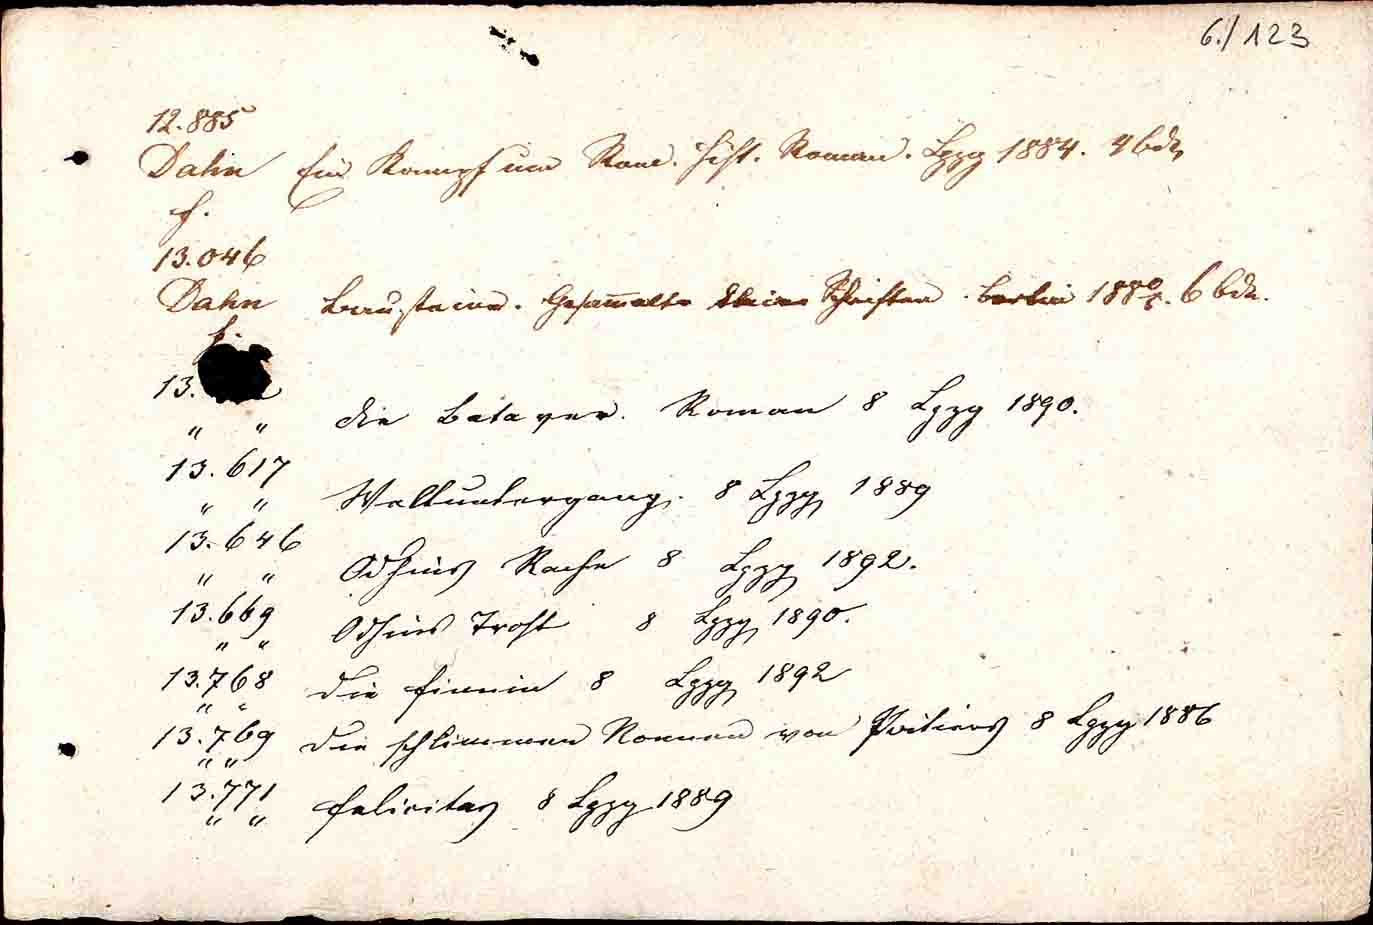 6./123
12.885
Dahn Ein Kampf um Rom. Hist. Roman. Lpzg 1884. 4 bde
F.
13.046
Dahn Bausteine. Gesammelte kleine Schriften. Berlin 188 6 bde.
F.
13.
" " Die Bataver. Roman 8 Lpzg 1890.
13.617
" " Weltuntergang. 8 Lpzg 1889
13.646
" " Odhins Rache 8 Lpzg 1892.
13.669
" " Odhins Trost 8 Lpzg 1890.
13.768 Die Finnin 8 Lpzg 1892
" "
13.769 Die schlimmen Nonnen von Poitiers 8 Lpzg 1886
" "
13.771 Felicitas 8 Lpzg 1889
" "